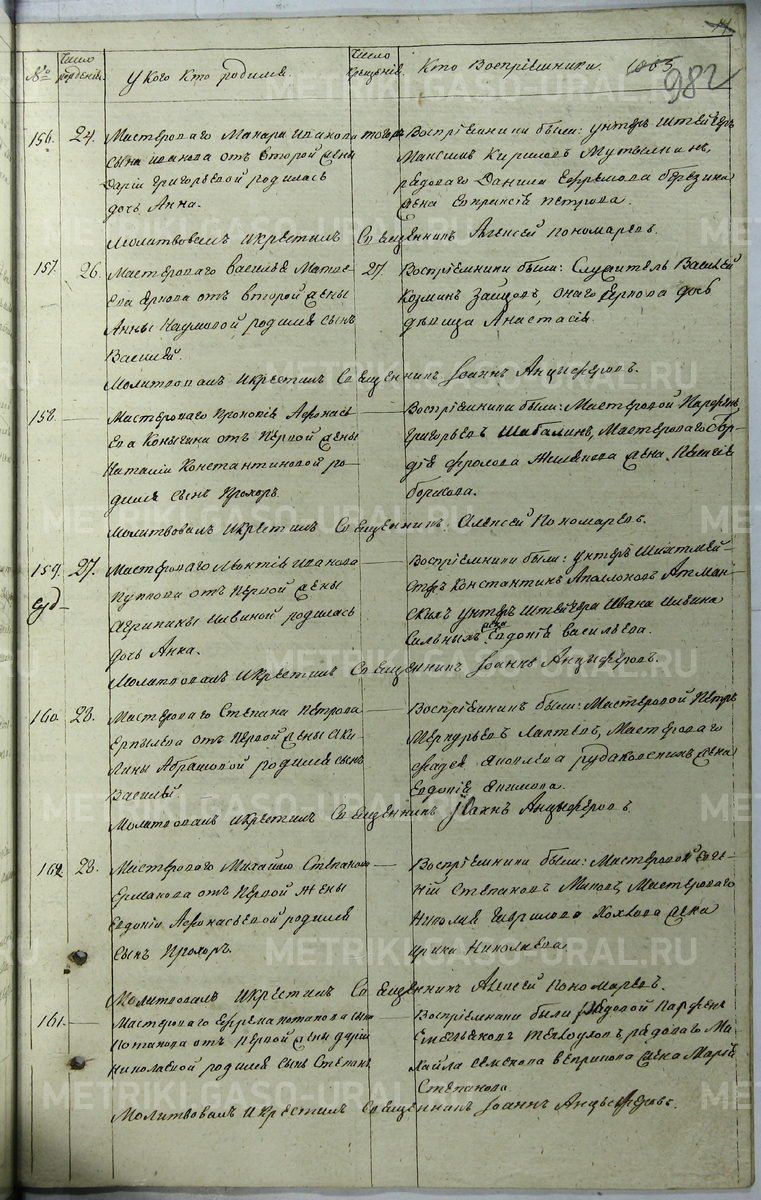 №
Число рожденія.
У кого кто родился.
Число крещенія.
Кто Воспріемники.
982
156. 24. Мастероваго Макара Иванова
сына Иванова отъ второй жены
Даріи Григорьевой родилась
дочь Анна.
тогожъ
Воспріемники были: унтеръ Штейгеръ
Максимъ Кириловъ Мутылкинъ,
рядоваго Данила Ефремова Березина
жена Евпраксія Петрова.
Молитвовалъ и крестилъ Священникъ Алексей Пономаревъ.
157. 26. Мастероваго Василья Матве-
ева отъ второй жены
Анны Наумовой родился сынъ
Василей.
27. Воспріемники были: Служитель Василей
Козминъ Зайцовъ, онаго дочь
девица Анастасія.
Молитвовалъ и крестилъ Священникъ Іоаннъ Анцыферовъ.
158. Мастероваго Прокопія Афонась
ева Коныгина отъ первой жены
Наталіи Константиновой ро-
дился сынъ Прохоръ.
Воспріемники были: Мастеровой Парфенъ
Григорьевъ Шабалинъ, Мастероваго
Фролова жена Пелагія
Борисова.
Молитвовалъ и крестилъ Священникъ Алексей Пономаревъ.
159. 27. Мастероваго Леонтія Иванова
отъ первой жены
Агрипины Ильиной родилась
дочь Анна.
Воспріемники были: унтеръ Шихтмей-
стеръ Константинъ Аполоновъ Атман-
скихъ унтеръ Штейгера Ивана Ильина
Сильныхъ жена Евдокія Васильева.
Молитвовалъ и крестилъ Священникъ Іоаннъ Анцыферовъ.
160. 28. Мастероваго Степана Петрова
Ерпылева отъ первой жены Аку-
лины Абрамовой родился сынъ
Василей.
Воспріемники были: Мастеровой Петръ
Меркурьевъ Лаптевъ, Мастероваго
Фадея Яковлева Рудаковскихъ жена
Евдокія Якимова.
Молитвовалъ и крестилъ Священникъ Іоаннъ Анцыферовъ
28. Мастероваго Михайло Степанова
Ермакова отъ первой жены
Евдокіи Афонасьевой родился
сынъ Прохоръ.
Воспріемники были: Мастеровой Евге-
ній Степановъ Мановъ, Мастероваго
Николая Гаврилова жена
Ирина Николаева
Молитвовалъ и крестилъ Священникъ Алексей Пономаревъ.
161. Мастероваго Ефрема Потапова сына
Потапова отъ первой жены Даріи
Николаевой родился сынъ Степанъ
Воспріемники были рядовой Парфенъ
Емельяновъ рядоваго Ми-
хайла жена Марія
Степанова
Молитвовалъ и крестилъ Священникъ Іоаннъ Анцыферовъ.
METRIKI.GASO-URAL.RU